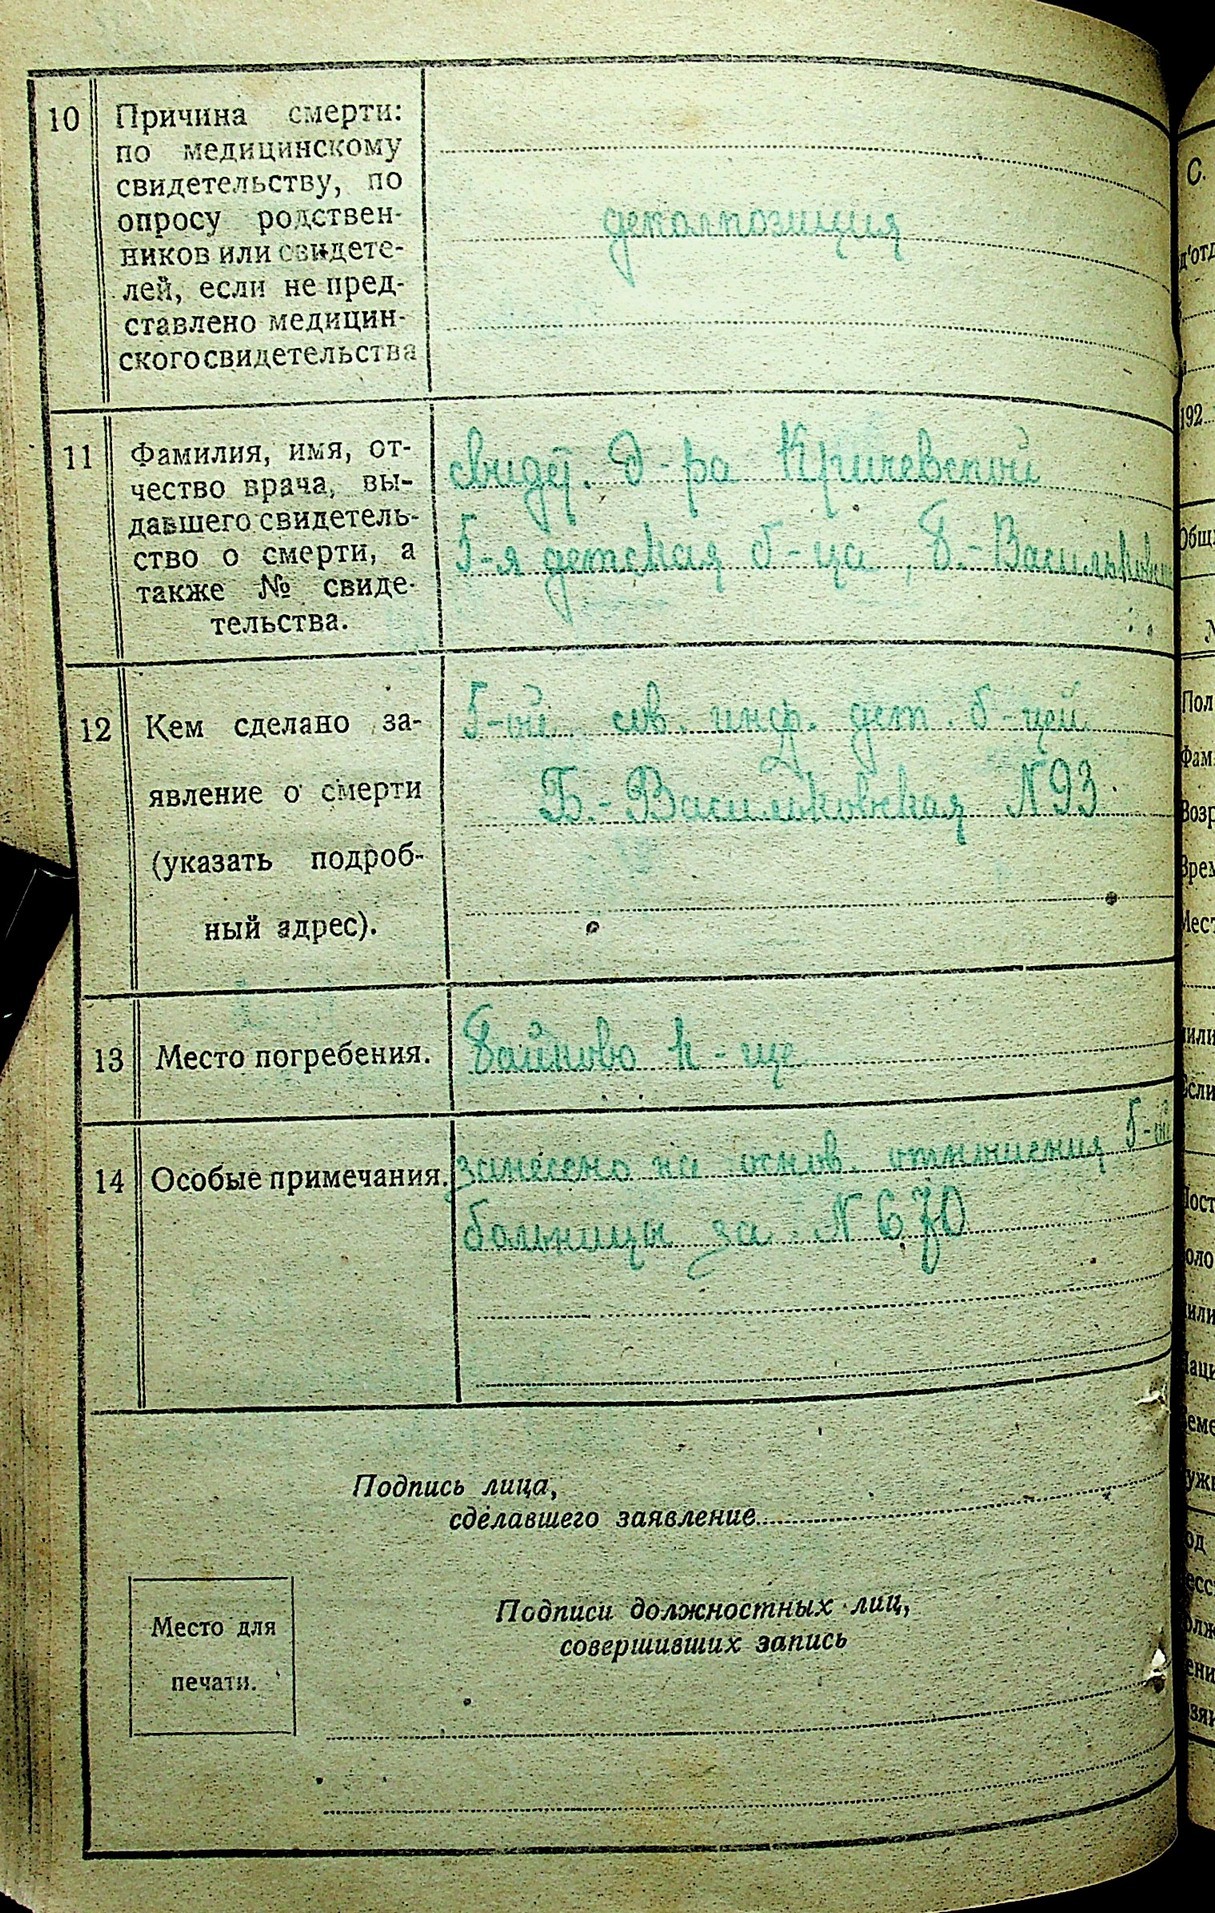 10 Причина смерти:
по медицинскому
свидетельству, по
опросу родствен-
ников или свидете-
лей, если не пред-
ставлено медицин-
ского свидетельства
декомпозиция
11 Фамилия, имя, от-
чество врача, вы-
давшего свидетель-
ство о смерти, а
также № свиде-
тельства.
свидет. д-ра Кричевской
5-я детская б-ца, Б.-Васильковская
12 Кем сделано за-
явление о смерти
(указать подроб-
ный адрес).
5-ой сов. инф. дет. б-цей
Б.-Васильковская N 93
13 Место погребения.
Байково к-ще
14 Особые примечания.
занесено на основ. отношения 5-ой
больницы за N 670
Подпись лица,
сделавшего заявление
Место для
печати.
Подписи должностных лиц,
совершивших запись
С.
192